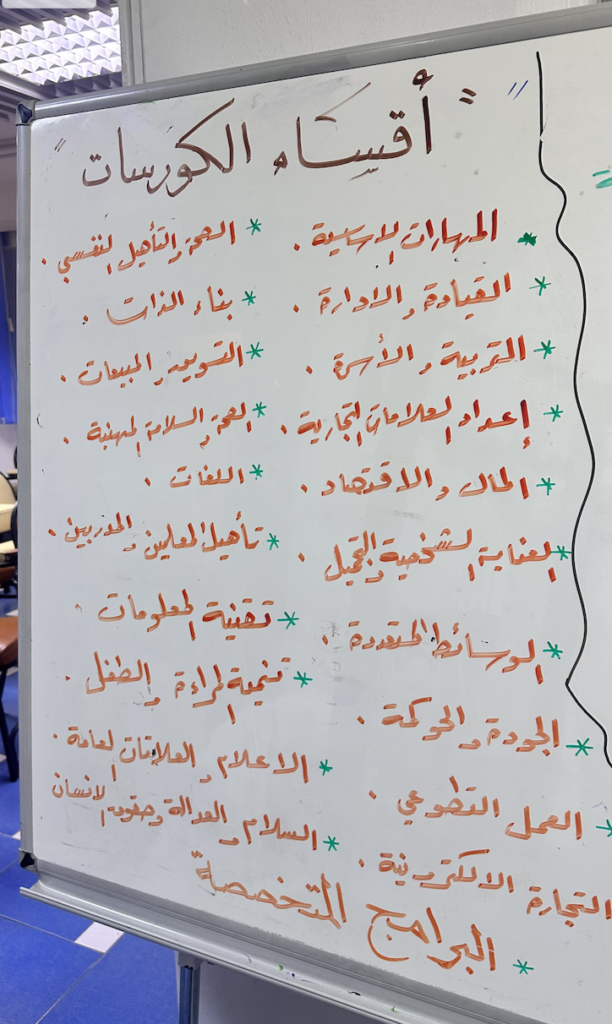 " أقسام الكورسات "
* المهارات الاساسية .
* القيادة والادارة .
* التربية والأسرة .
* إعداد العلامات التجارية .
* المال والاقتصاد .
* العناية الشخصية والتجميل
* الوسائط المتعددة .
* الجودة والحوكمة .
* العمل التطوعي .
التجارة الالكترونية .
* الصحة والتأهيل النفسي .
* بناء الذات .
* التسويق والمبيعات .
* الصحة والسلامة المهنية .
* اللغات .
* تأهيل المعلمين والمدربين .
* تقنية المعلومات
* تنمية المراءة والطفل .
* الاعلام والعلاقات العامة .
* السلام والعدالة وحقوق الانسان
* البرامج المتخصصة